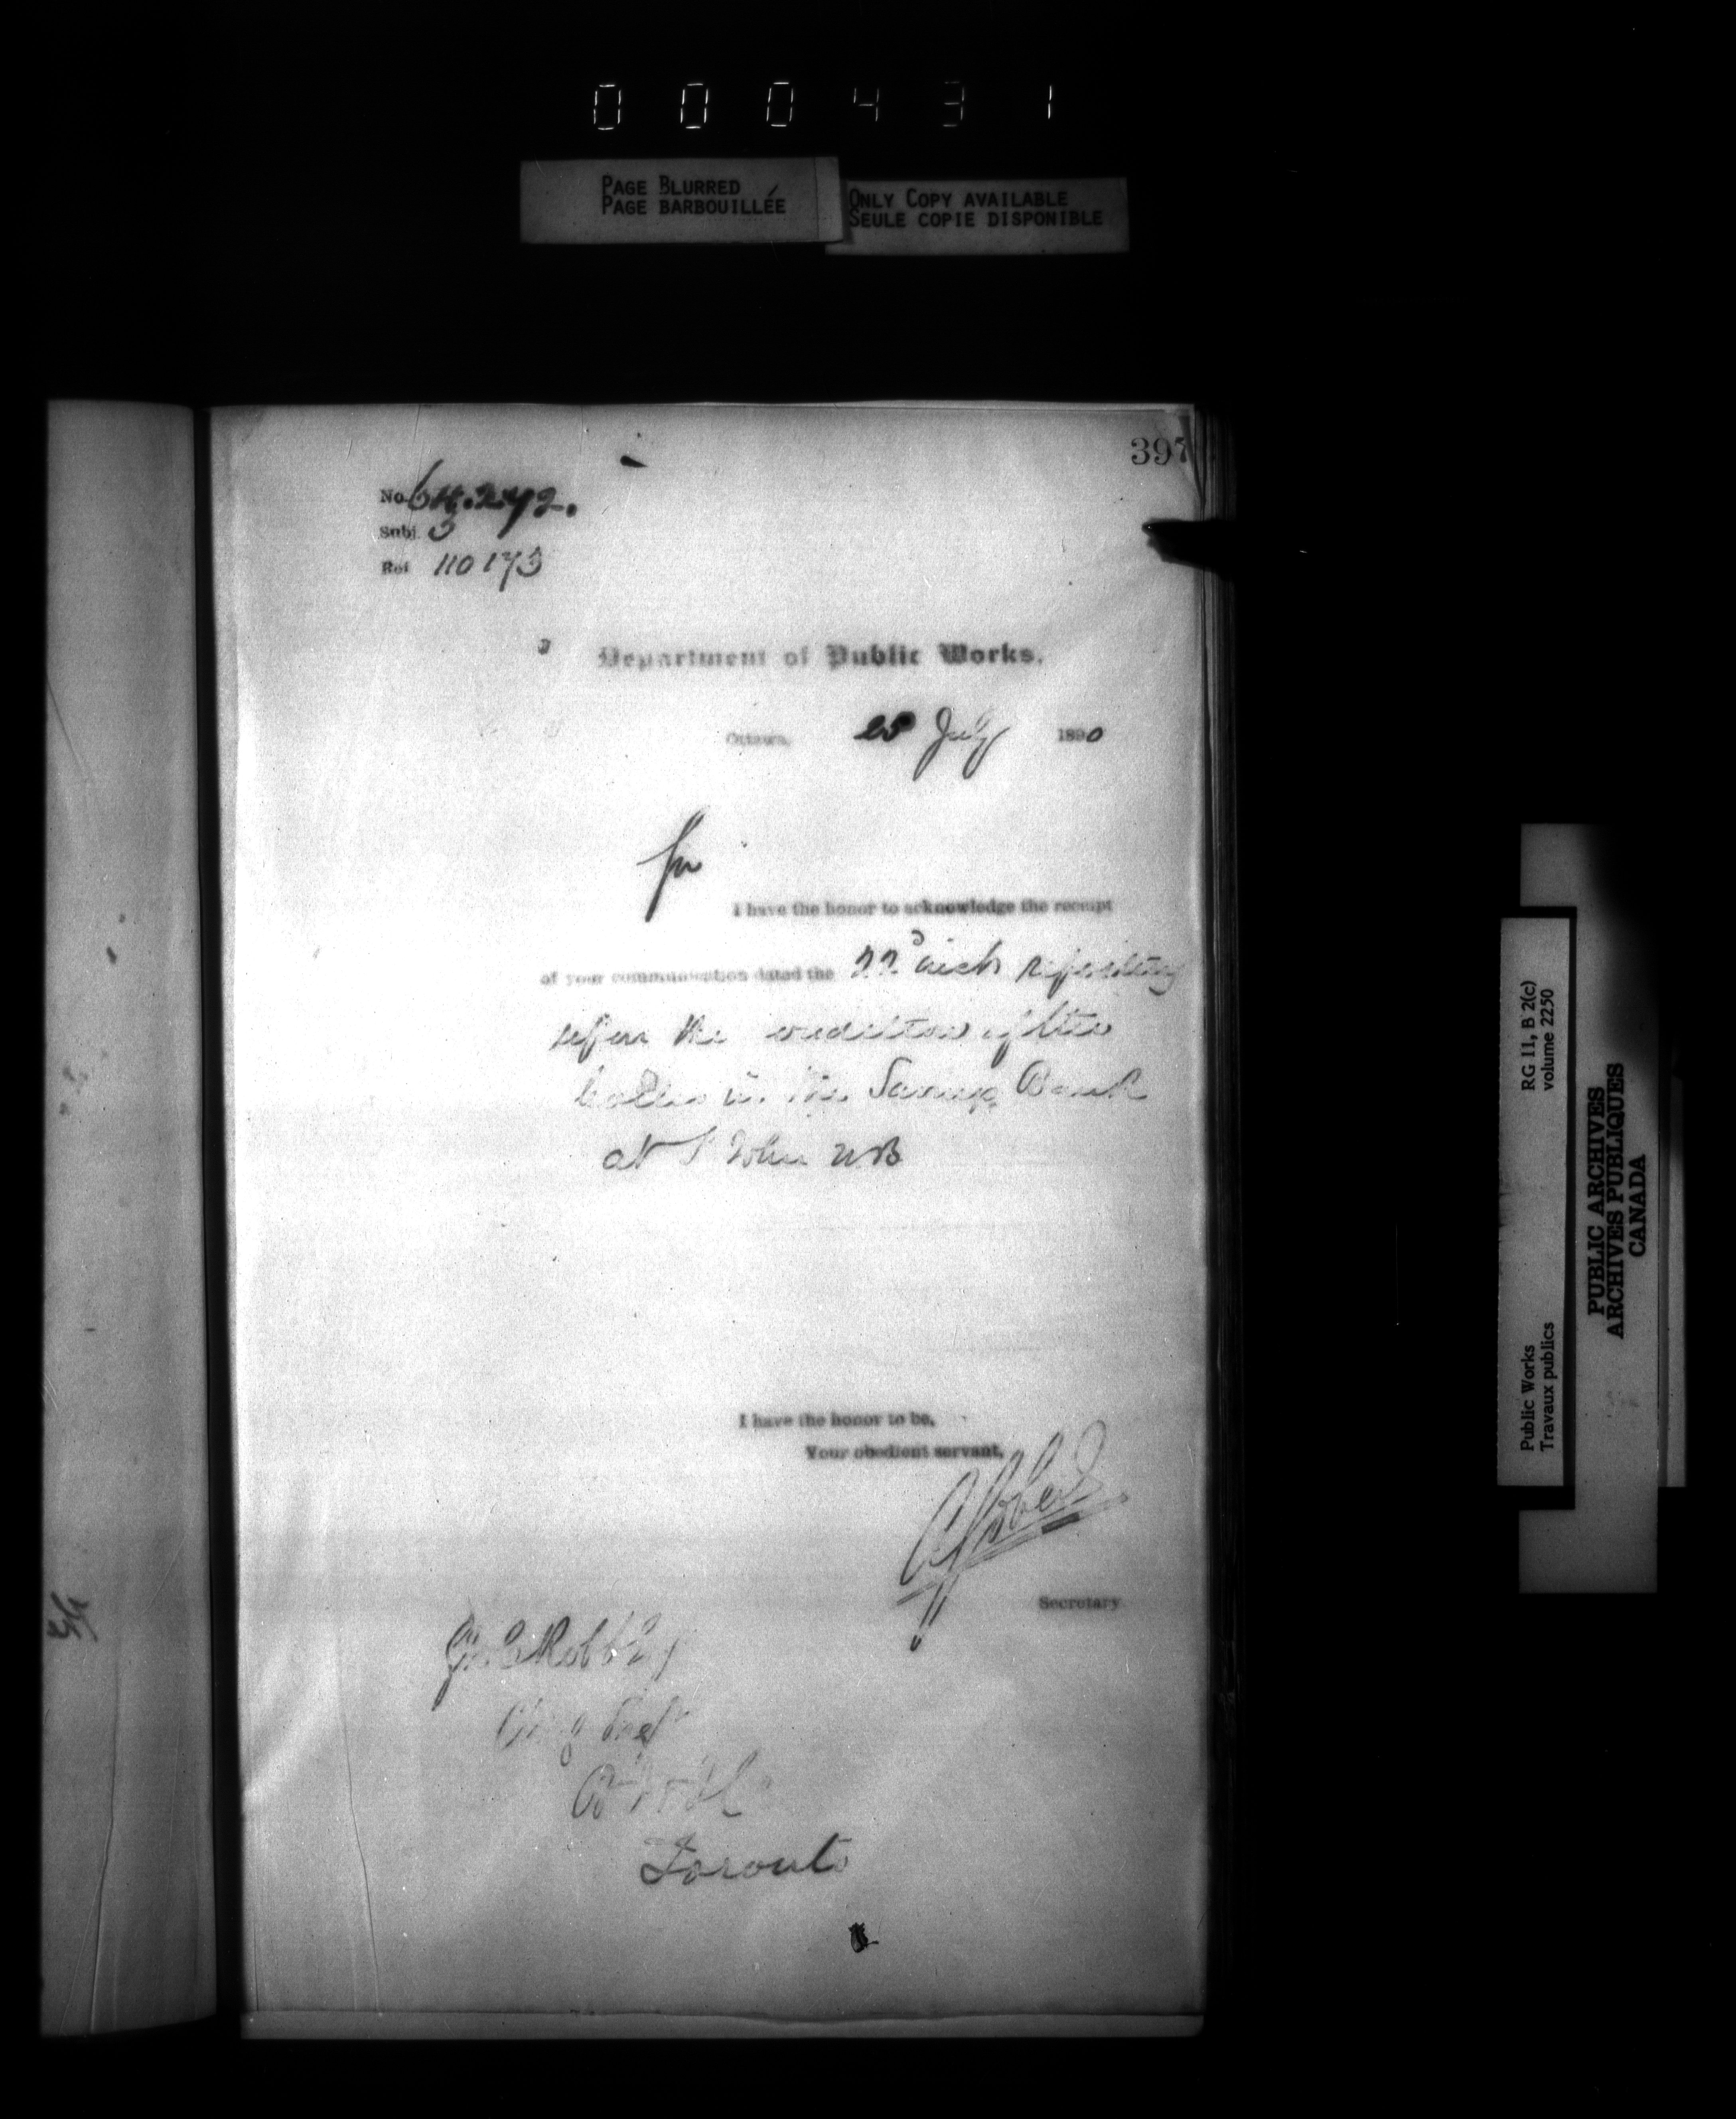 000431
PAGE BLURRED
PAGE BARBOUILLÉE
ONLY COPY AVAILABLE
SEULE COPIE DISPONIBLE
397
No 64.242.
Subj. 3
Ref 110173
Department of Public Works.
Ottawa, 25 July 1890
Sir
I have the honor to acknowledge the receipt
of your communication dated the 22d inst reporting
upon the condition of the
boiler in the Savings Bank
at St John NB
I have the honor to be,
Your obedient servant,
Secretary
Robb Esq
Toronto
Public Works
Travaux publics
RG 11, B 2(c)
volume 2250
PUBLIC ARCHIVES
ARCHIVES PUBLIQUES
CANADA